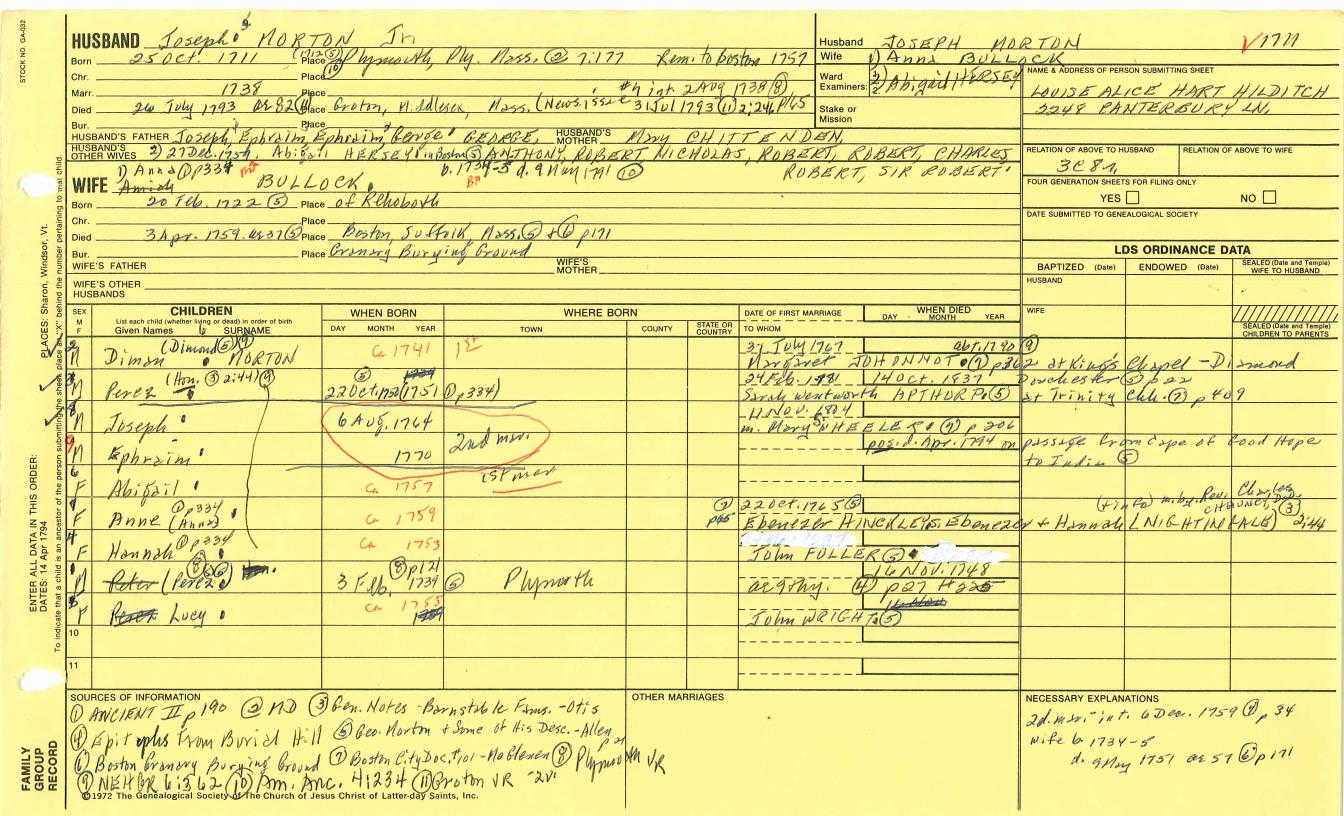 STOCK NO. GA-032
HUSBAND Joseph MORTON Jr.
Born 25 Oct. 1711 (1712 (5) Place Plymouth, Ply. Mass. (2) 7:177 Rem. to Boston 1757
Chr. Place (10)
Marr. 1738 Place int 2 Aug 1738 (8)
Died 26 July 1793 ae 82 (11) Place Groton, Middlesex, Mass. (News issue 31 Jul 1793 (11) 2:246 p165
Bur. Place
HUSBAND'S FATHER Joseph, Ephraim, Ephraim, George, GEORGE, HUSBAND'S MOTHER Mary CHITTENDEN,
HUSBAND'S OTHER WIVES 2) 27 Dec. 1759, Abigail HERSEY in Boston (5) ANTHONY, ROBERT NICHOLAS, ROBERT, ROBERT, CHARLES
b. 1734-5 d. 9 May 1791 (10) ROBERT, SIR ROBERT
1) Anna (1) p334
WIFE Amiah BULLOCK
Born 20 Feb. 1722 (5) Place of Rehoboth
Chr. Place
Died 3 Apr. 1759. ae 37 (5) Place Boston, Suffolk, Mass. (5) + (6) p171
Bur. Place Granary Burying Ground
WIFE'S FATHER WIFE'S MOTHER
WIFE'S OTHER HUSBANDS
Husband JOSEPH MORTON √1711
Wife 1) Anna BULLOCK
Ward 2) Abigail HERSEY
Examiners: 1. 2.
Stake or Mission
NAME & ADDRESS OF PERSON SUBMITTING SHEET
LOUISE ALICE HART HILDITCH
2248 CANTERBURY LN.
RELATION OF ABOVE TO HUSBAND RELATION OF ABOVE TO WIFE
3C8r
FOUR GENERATION SHEETS FOR FILING ONLY
YES NO
DATE SUBMITTED TO GENEALOGICAL SOCIETY
LDS ORDINANCE DATA
BAPTIZED (Date) ENDOWED (Date) SEALED (Date and Temple) WIFE TO HUSBAND
HUSBAND
WIFE
SEALED (Date and Temple) CHILDREN TO PARENTS
SEX M F CHILDREN WHEN BORN WHERE BORN DATE OF FIRST MARRIAGE WHEN DIED
List each child (whether living or dead) in order of birth
Given Names SURNAME DAY MONTH YEAR TOWN COUNTY STATE OR COUNTRY TO WHOM DAY MONTH YEAR
2 M Diman (Dimond (5) (9) MORTON Ca 1741 1st 31 July 1767 abt. 1790 (9)
Margaret JOHONNOT (7) p362 at King's Chapel - Diamond
3 M Perez (Hon. (3) 2:44) (9) (5) 22 Oct. 1750 (1751 (1) p334) 24 Feb. 1781 14 Oct. 1837 Dorchester (5) p22
Sarah Wentworth APTHORP (5) at Trinity Chh. (7) p409
8 M Joseph 6 Aug. 1764 11 Nov. 1804
m. Mary WHEELER (7) p206
9 M Ephraim 1770 2nd mar. pos. d. Apr. 1794 on passage from Cape of Good Hope
to India (5)
6 F Abigail Ca 1757 1st mar
F Anne (1) p334 (Anna) Ca 1759 (7) p65 22 Oct. 1765 (5) (+info) m. by Rev. Charles CHAUNCY, D.D. (3)
Ebenezer HINCKLEY, s. Ebenezer + Hannah (NIGHTINGALE) 2:44
4 F Hannah (1) p334 Ca 1753
John FULLER (5)
1 M Peter (Perez (8) (6) (8) p121 3 Feb. 1739 (5) Plymouth 16 Nov. 1748
ae 9y 9m. (4) p27 #225
5 F Perez Lucy Ca 1755
John WRIGHT (5)
10
11
SOURCES OF INFORMATION
(1) ANCIENT II p190 (2) MD (3) Gen. Notes - Barnstable Fams. - Otis
(4) Epitaphs From Burial Hill (5) Geo. Morton + Some of His Desc. - Allen p21
(6) Boston Granary Burying Ground (7) Boston City Doc. #101 - McGlenen (8) Plymouth VR
(9) NEHGR 6:362 (10) Am. Anc. 41234 (11) Groton VR -2v.
©1972 The Genealogical Society of The Church of Jesus Christ of Latter-day Saints, Inc.
OTHER MARRIAGES
NECESSARY EXPLANATIONS
2d. mar. - int. 6 Dec. 1759 (7) p34
wife b 1734-5
d. 9 May 1751 ae 57 (6) p171
FAMILY GROUP RECORD
ENTER ALL DATA IN THIS ORDER:
DATES: 14 Apr 1794
PLACES: Sharon, Windsor, Vt.
To indicate that a child is an ancestor of the person submitting the sheet, place an "X" behind the number pertaining to that child.